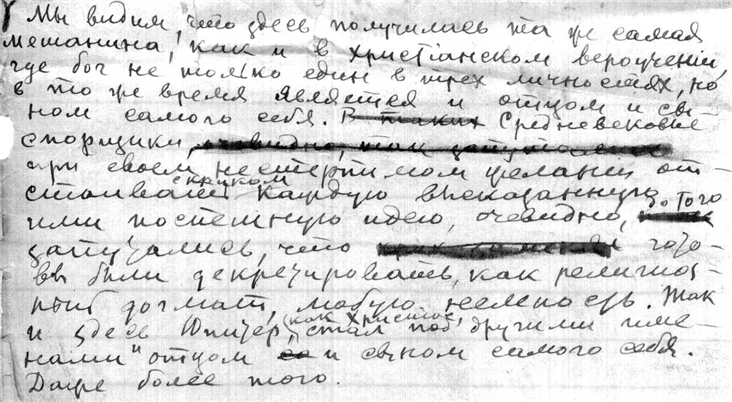 Мы видим, что здесь получилась та же самая
мешанина, как и в христіанском вероучении,
где бог не только един в трех личностях, но
в то же время является и отцом и сы-
ном самого себя. В таких Средневековые
спорщики,
при своем нестерпимом желании от-
стаивать с криком каждую высказанную
ими поспешную идею, очевидно, до того
запутались, что гото-
вы были декретировать, как религиоз-
ный догмат, любую нелепость. Так
и здесь Юпитер, "как Христос, стал под другими име-
нами" отцом и сыном самого себя.
Даже более того.